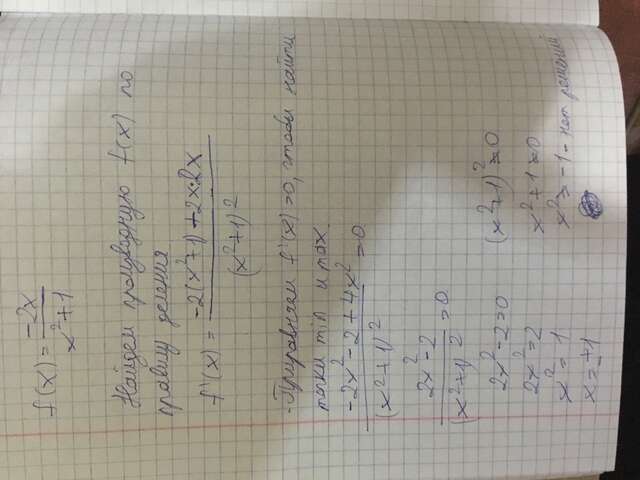 f(x) = -2x / x²+1
Найдем производную f(x) по
правилу деления
f'(x) = -2(x²+1)+2x·2x / (x²+1)²
-Приравняем f'(x)=0, чтобы найти
точки min и max.
-2x²-2+4x² / (x²+1)² =0
2x²-2 / (x²+1)² =0
2x²-2=0 (x²+1)²=0
2x²=2 x²+1=0
x²=1 x²=-1-нет решений
x=±1